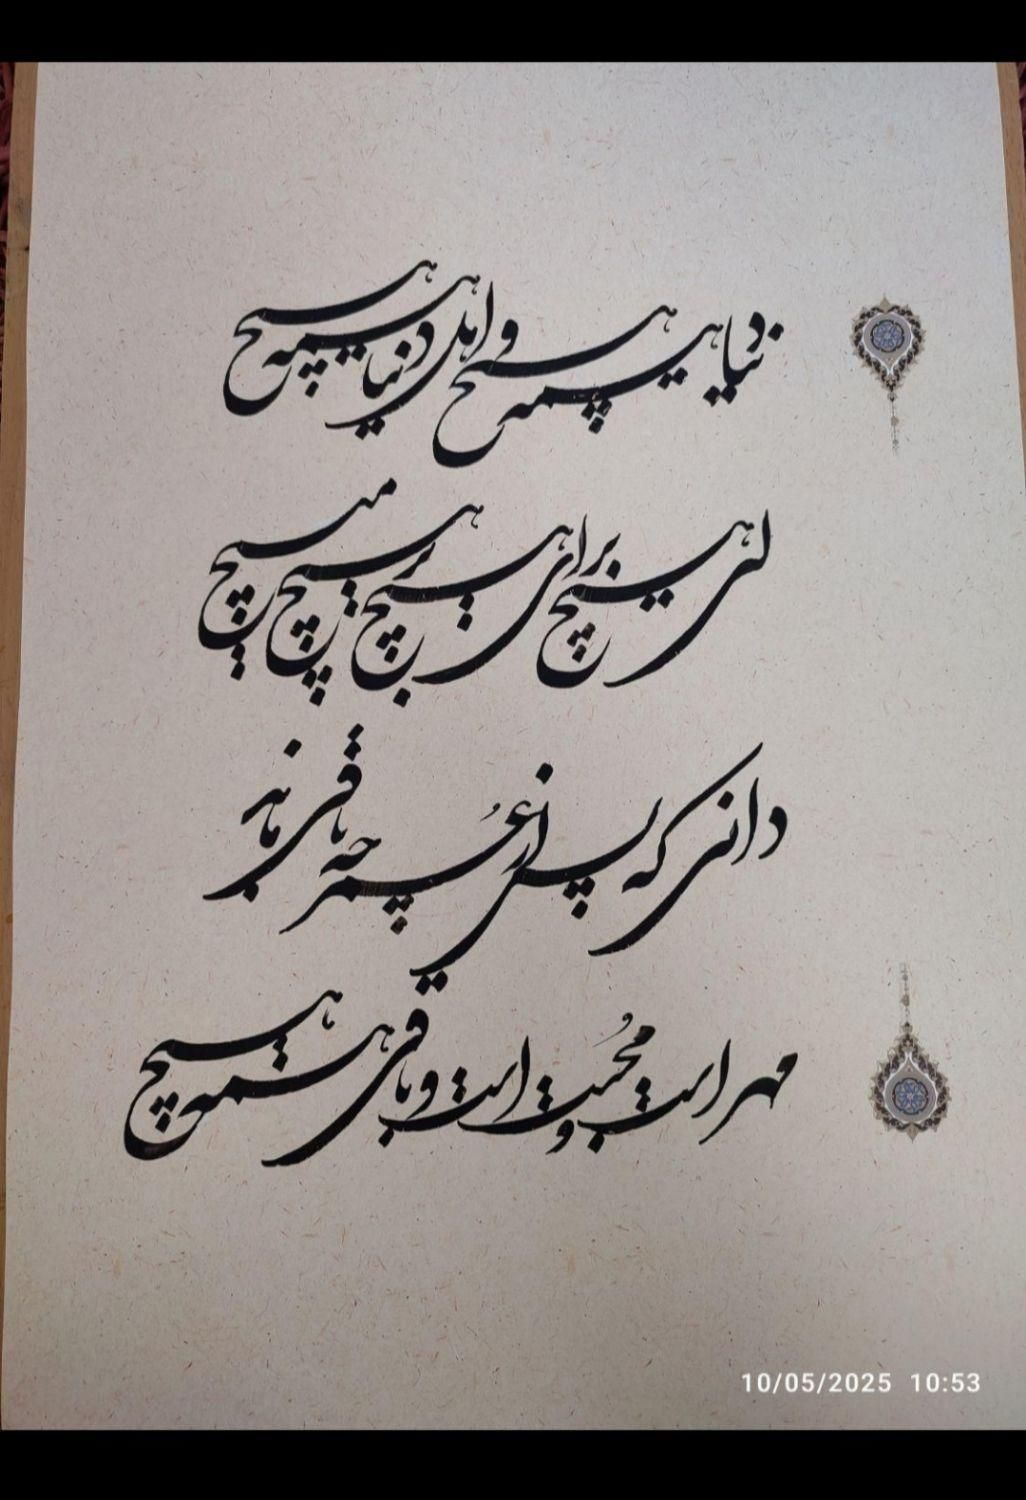 دنیا همه هیچ و اهل دنیا همه هیچ
ای هیچ برای هیچ بر هیچ مپیچ
دانی که پس از عُمر چه باقی ماند
مهر است و محُبت است و باقی همه هیچ
10/05/2025 10:53